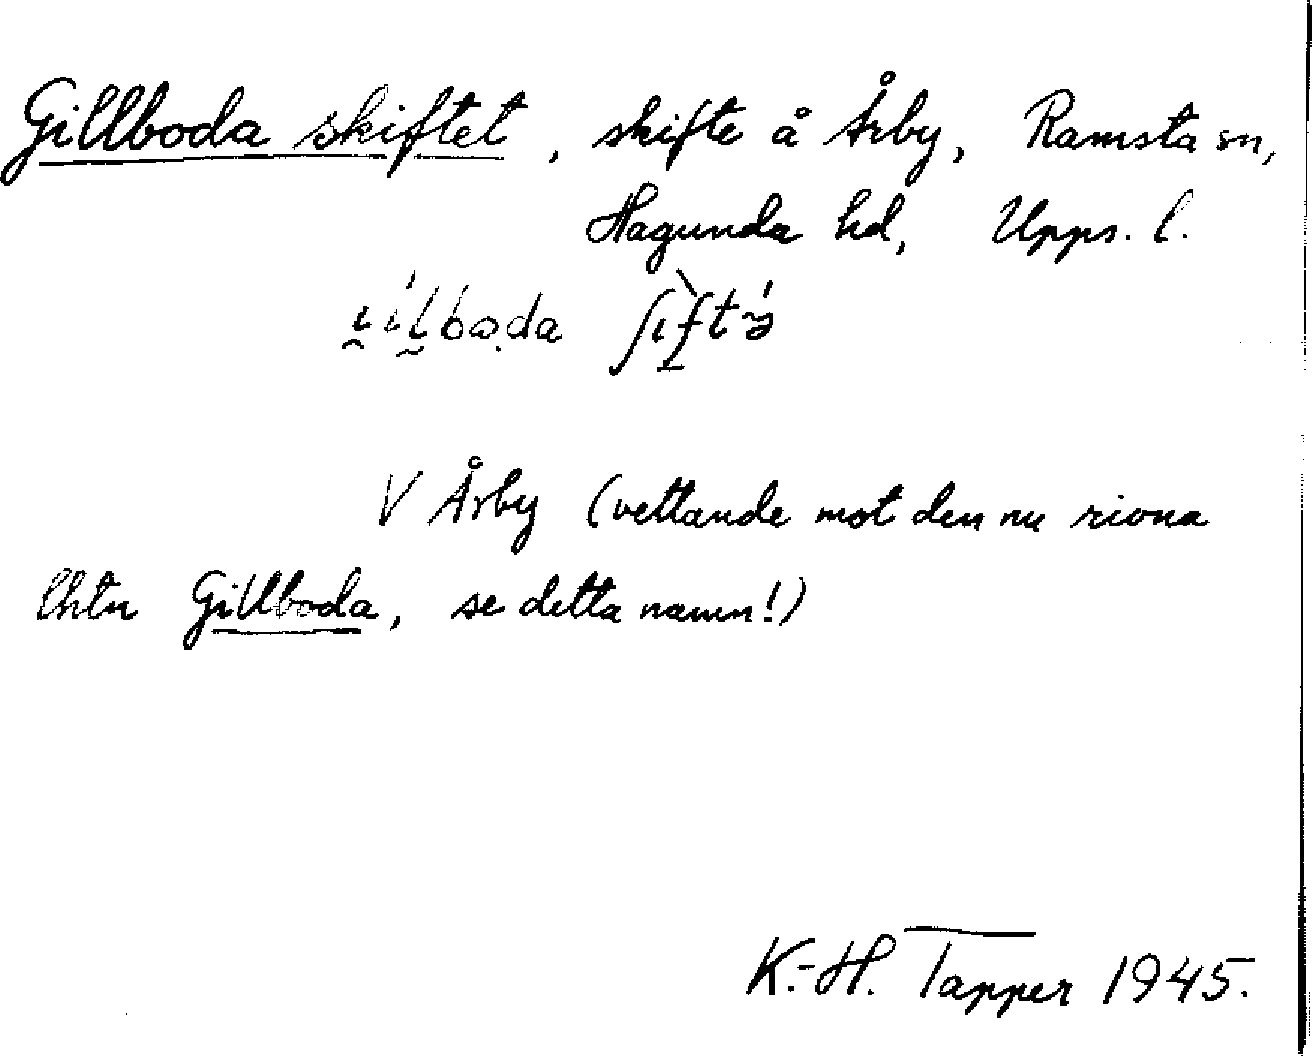 Gillboda skiftet, skifte å Årby, Ramsta sn,
Hagunda hd, Upps. l.
V Årby (vettande mot den nu rivna
lhtn Gillboda, se detta namn!)
K.-H. Tapper 1945.